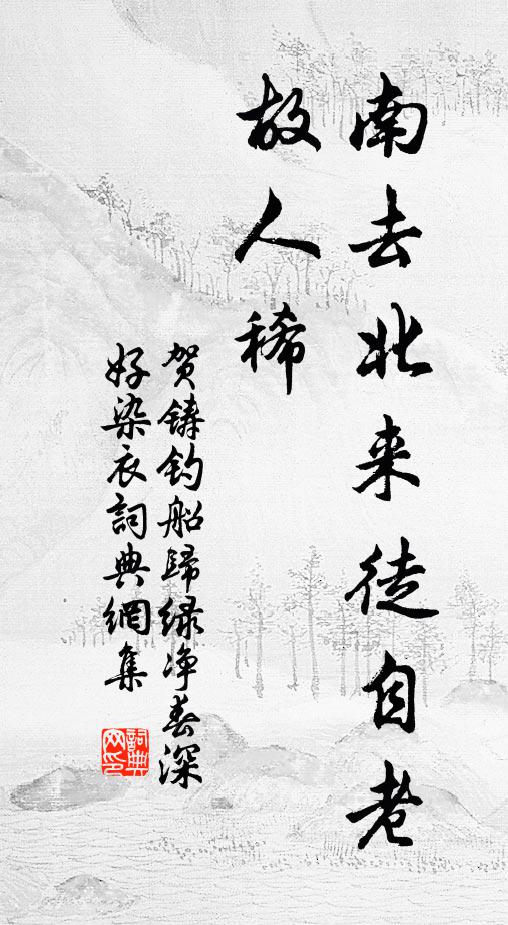 南去北来徒自老
故人稀
贺铸钓船归绿净春深
好染衣詞典網集
詞典
网印